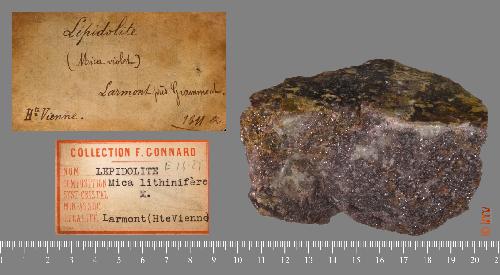 Lépidolite
(Mica violet)
Larmont près Grammont.
Hte Vienne.
COLLECTION F. GONNARD
NOM LEPIDOLITE
COMPOSITION Mica lithinifère
SYST. CRISTAL X.
LOCALITÉ Larmont(HteVienne
1 2 3 4 5 6 7 8 9 10 11 12 13 14 15 16 17 18 19 20 2